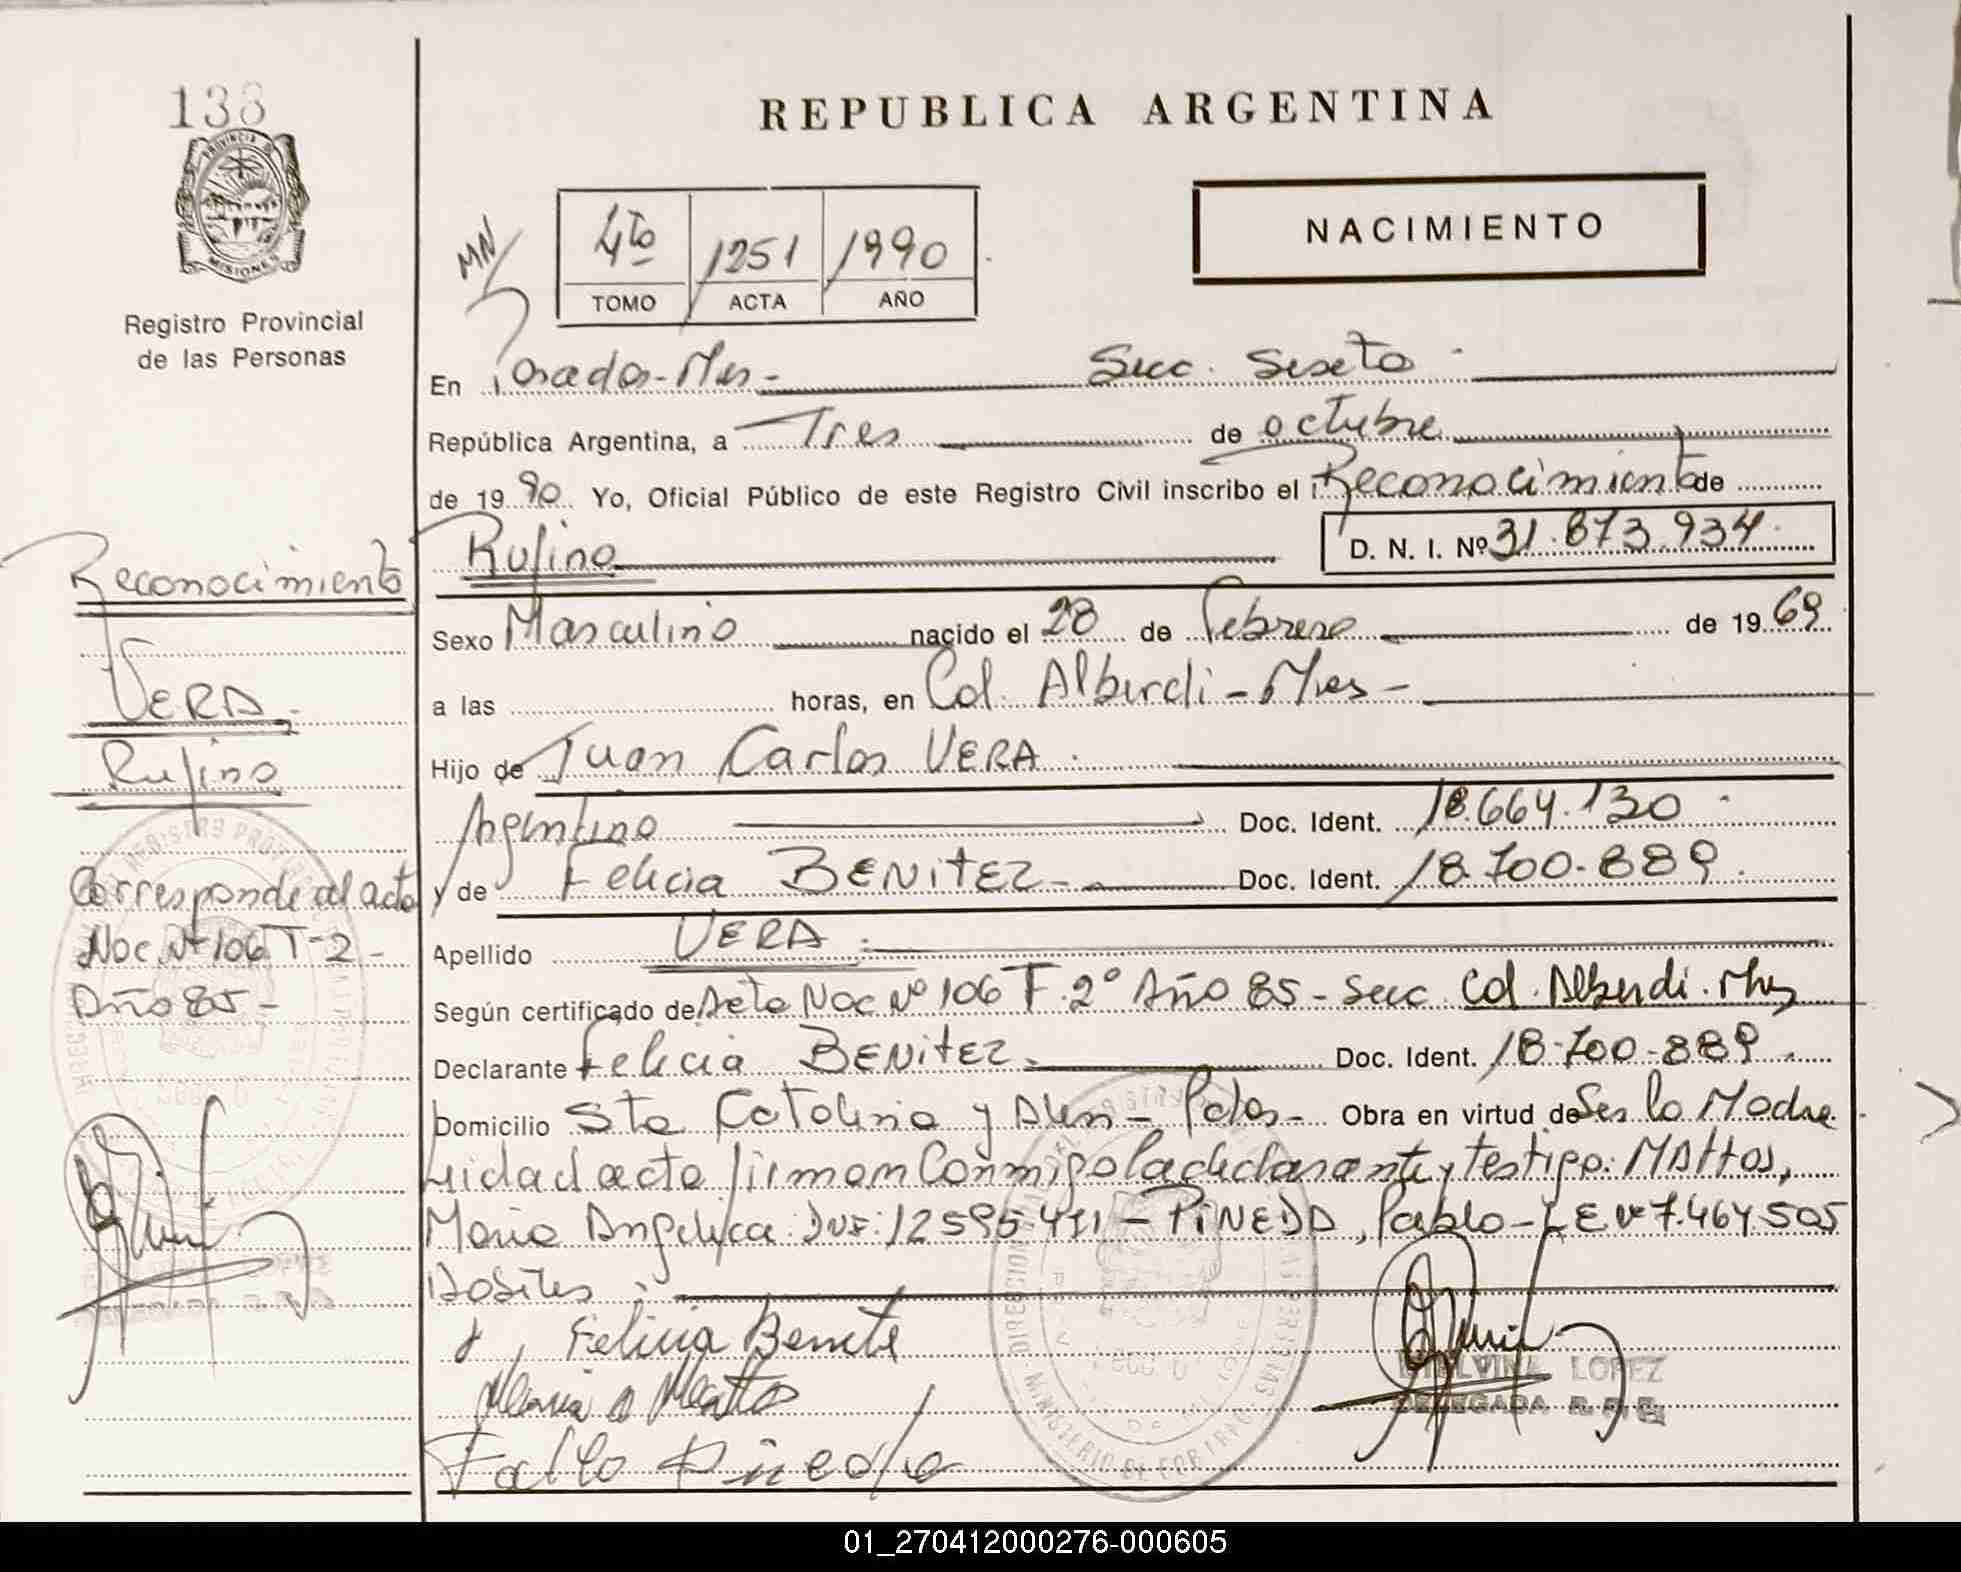 138
PROVINCIA DE
MISIONES
Registro Provincial
de las Personas
REPUBLICA ARGENTINA
NACIMIENTO
MN
4to 1251 1990
TOMO ACTA AÑO
En Posadas-Mnes- Secc. Sexta
República Argentina, a Tres de octubre
de 1990 Yo, Oficial Público de este Registro Civil inscribo el Reconocimiento de
Rufino D. N. I. Nº 31.873.934
Sexo Masculino nacido el 28 de Febrero de 1969
a las horas, en Col. Alberdi-Mnes-
Hijo de Juan Carlos VERA
Argentino Doc. Ident. 18.664.130
y de Felicia BENITEZ- Doc. Ident. 18.700.889
Apellido VERA
Según certificado de Acta Nac Nº 106 T. 2º Año 85- Secc. Col. Alberdi. Mnes
Declarante Felicia BENITEZ Doc. Ident. 18.700.889
Domicilio Sta Catalina y Alem- Pdas- Obra en virtud de Ser la Madre
Leida el acta firman conmigo la declarante y testigo: MAttos,
Maria Angelica: DNI: 12595411- PINEDA, Pablo- LE Nº 7.464.505
Habiles
Felicia Benite
Maria a Mattos
Pablo Pineda
LOPEZ
DELEGADA R.P.P.
Reconocimiento
VERA
Rufino
Corresponde al acta
Nac. Nº 106 T-2-
Año 85-
01_270412000276-000605